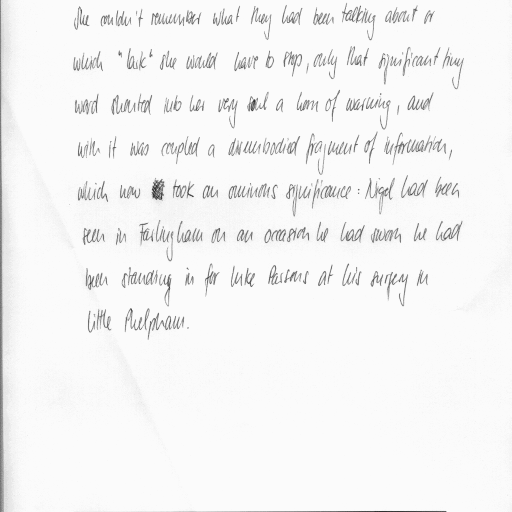 She couldn't remember what they had been talking about or
which "lark" she would have to stop, only that significant tiny
word shouted into her very soul a horn of warning, and
with it was coupled a disembodied fragment of information,
which now took an ominous significance : Nigel had been
seen in Farlingham on an occasion he had sworn he had
been standing in for Luke Parsons at his surgery in
Little Phelpham.